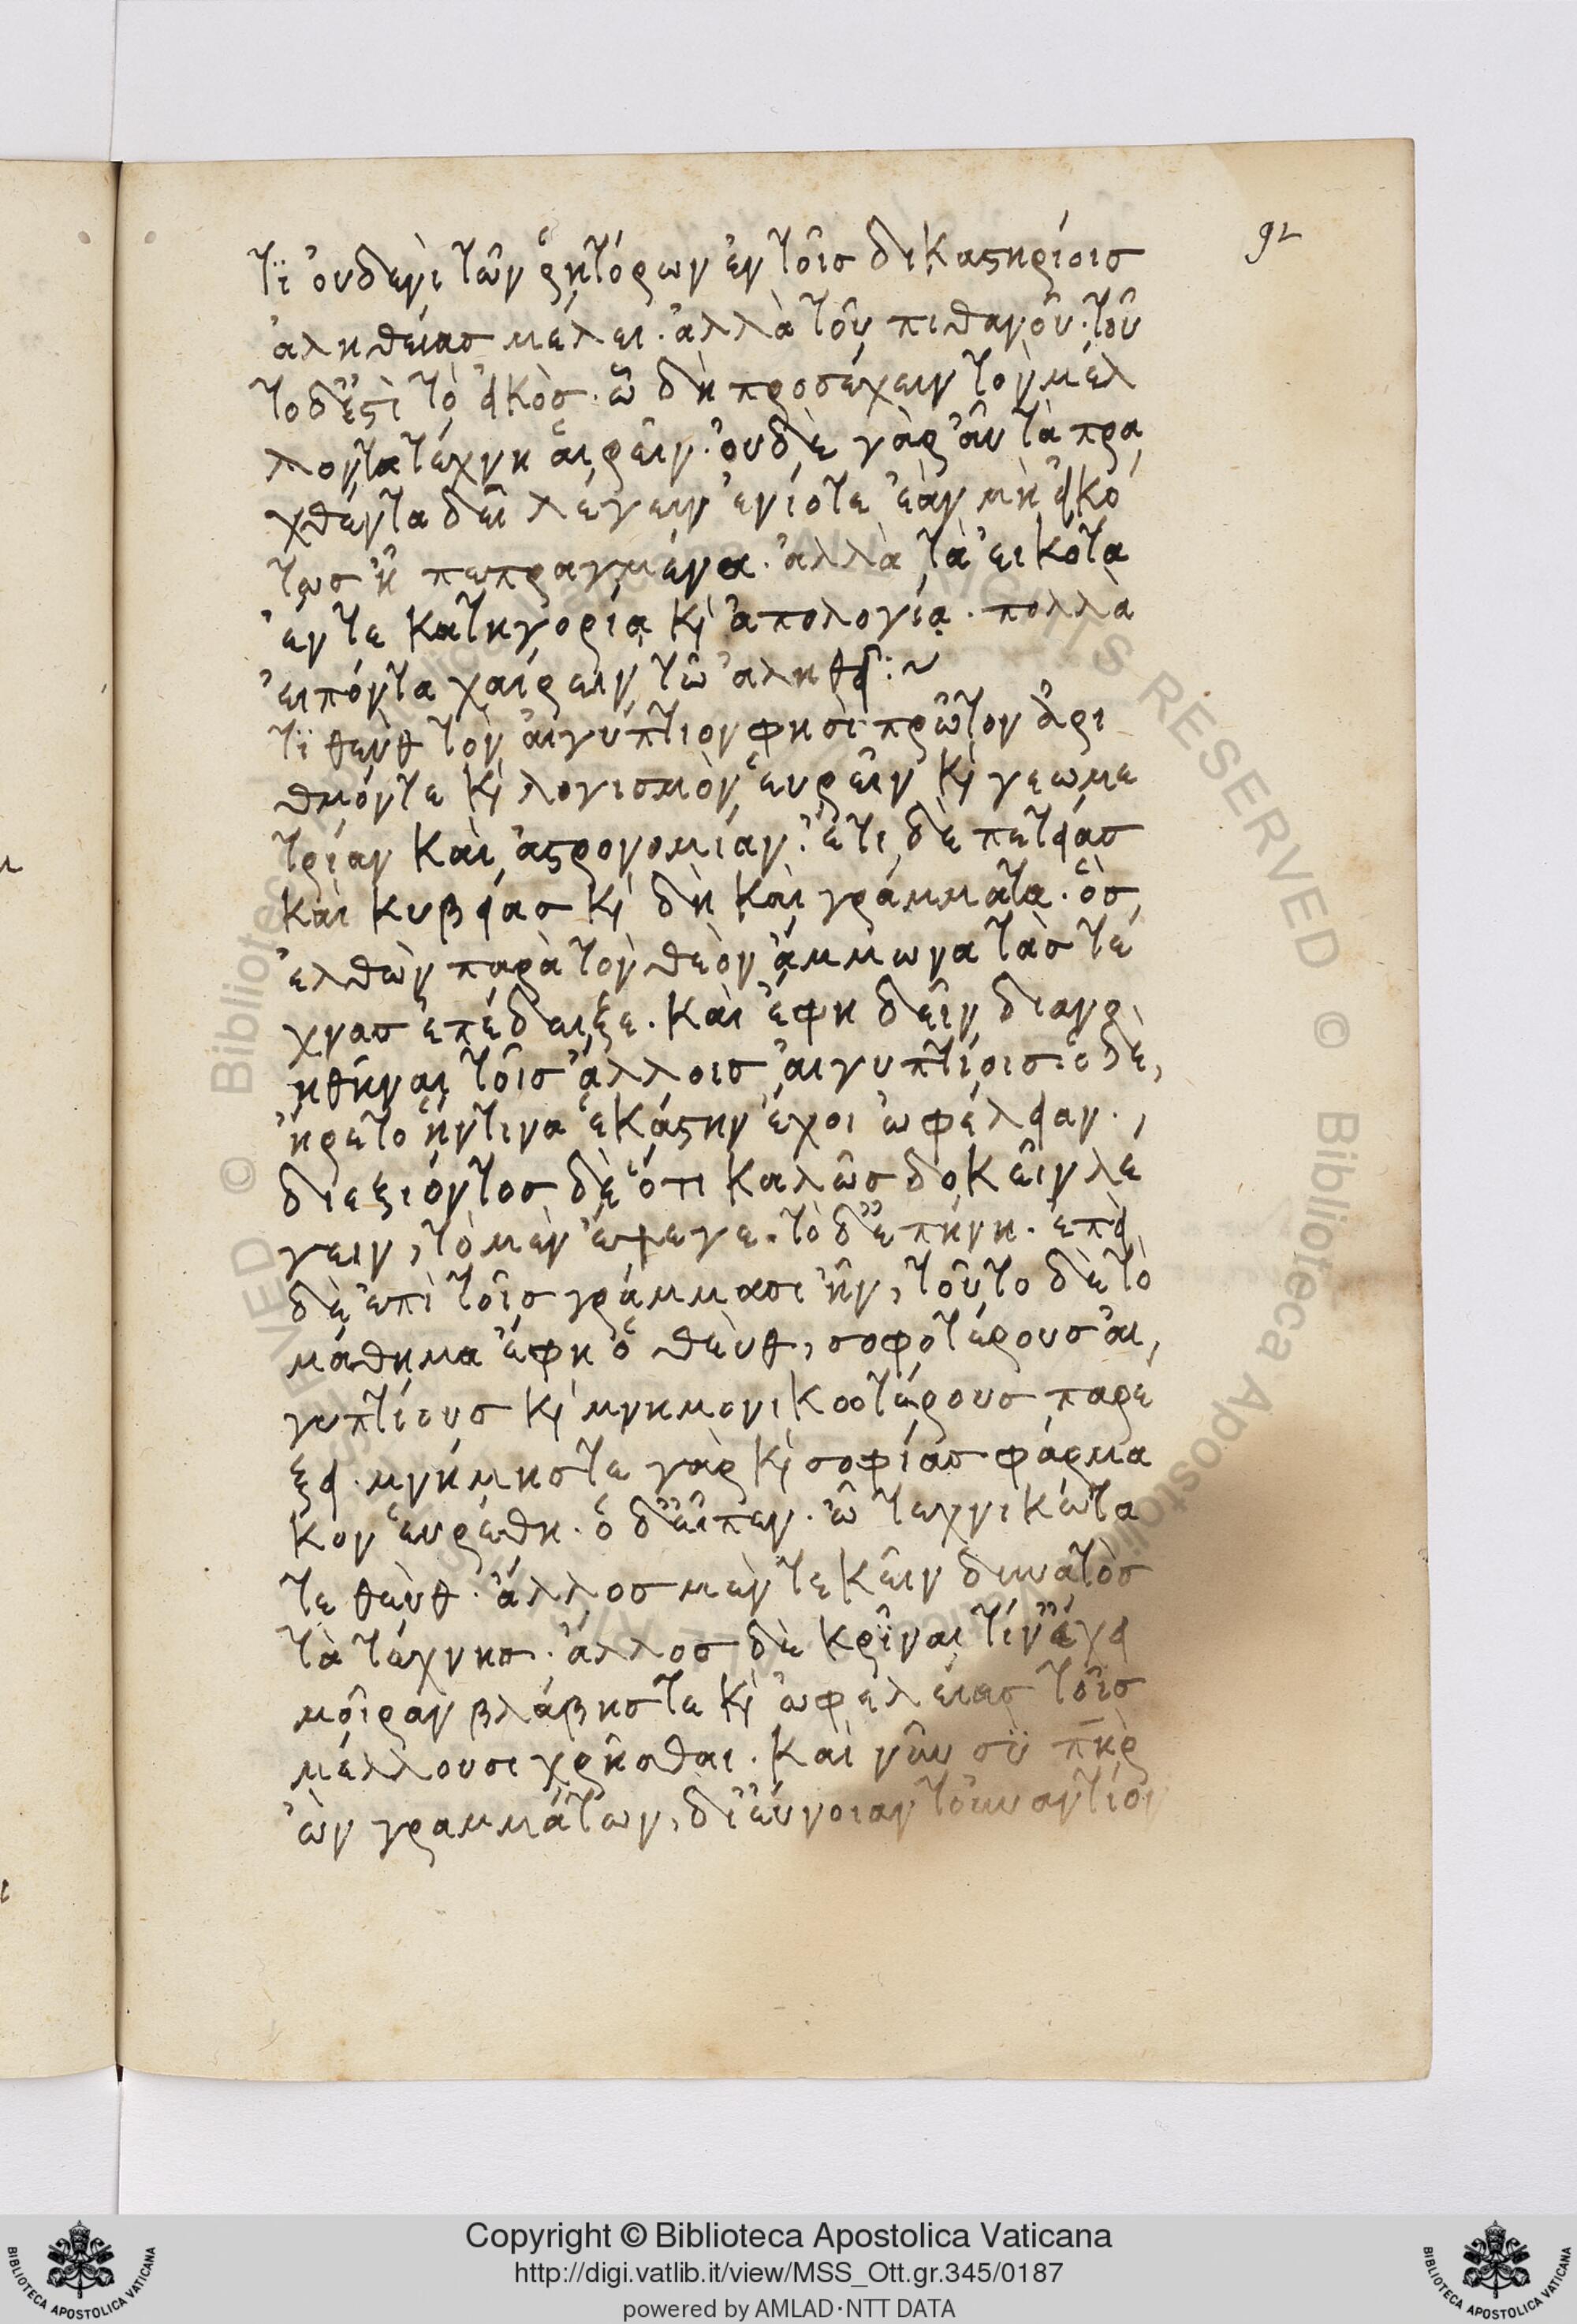 92
τϊ ὀυδενὶ τῶν ῥητόρων ἐν τοῖσ δικαστηρίοισ
ἀληθείασ μέλει. ἀλλὰ τοῦ πιθανοῦ. τοῦ
τοδἔστὶ τὸ εἰκὸσ. ὧ δὴ προσέχειν τὸν μέλ
λοντα τέχνη ἁιρεῖν. ὀυδὲ γὰρ ἂυ τὰ πρα
χθέντα δεῖ λέγειν ἐνίοτε ἐὰν μὴ εἰκό
τωσ ἢ πεπραγμένα. ἀλλὰ τὰ ἐικότα
ἔν τε κατηγορία κὶ ἀπολογία. πολλὰ
ἐιπόντα χαίρειν τῶ ἀληθεῖ :~
τϊ θεὺθ τὸν ἀιγύπτιον φησὶ πρῶτον ἀρι
θμόντε κὶ λογισμὸν ἑυρεῖν κὶ γεωμε
τρίαν καὶ ἀστρονομίαν. ἔτι δὲ πεττείασ
καὶ κυβείασ κὶ δὴ καὶ γράμματα. ὃσ
ἐλθὼν παρὰ τὸν θεὸν ἄμμωνα τὰσ τέ
χνασ ἐπέδειξε. καὶ ἔφη δεῖν διανο
ηθῆναι τοῖσ ἄλλοισ ἀιγυπτίοισ. ὁ δὲ,
ἤρετο ἥντινα ἑκάστην ἔχοι ὠφέλειαν.,
διεξιόντοσ δὲ ὅτι καλῶσ δοκεῖν λέ
γειν, τὸ μὲν ἔψεγε. τὸ δ̓ ἐπήνη. ἐπεὶ
δὲ ἐπὶ τοῖσ γράμμασι ἦν, τοῦτο δὲ τὸ
μάθημα ἔφη ὁ θεὺθ, σοφοτέρουσ ἀι,
γυπτίουσ κὶ μνημονικοοτέρουσ παρέ
ξει. μνήμησ τε γὰρ κὶ σοφίασ φάρμα
κον ἑυρέθη. ὁ δ̓ εἶπεν. ὦ τεχνικώτα
τε θεὺθ. ἄλλοσ μὲν τεκεῖν δυνατὸσ
τὰ τέχνησ. ἄλλοσ δὲ κρῖναι τίν̓ ἔχει
μοῖραν βλάβησ τε κὶ ὠφελείασ τοῖσ
μέλλουσι χρῆσθαι. καὶ νῦν σὺ π̅η̅ρ
ὢν γραμμάτων, δἰ ἔυνοιαν τοὐναντίον
Copyright © Biblioteca Apostolica Vaticana
http://digi.vatlib.it/view/MSS_Ott.gr.345/0187
powered by AMLAD·NTT DATA